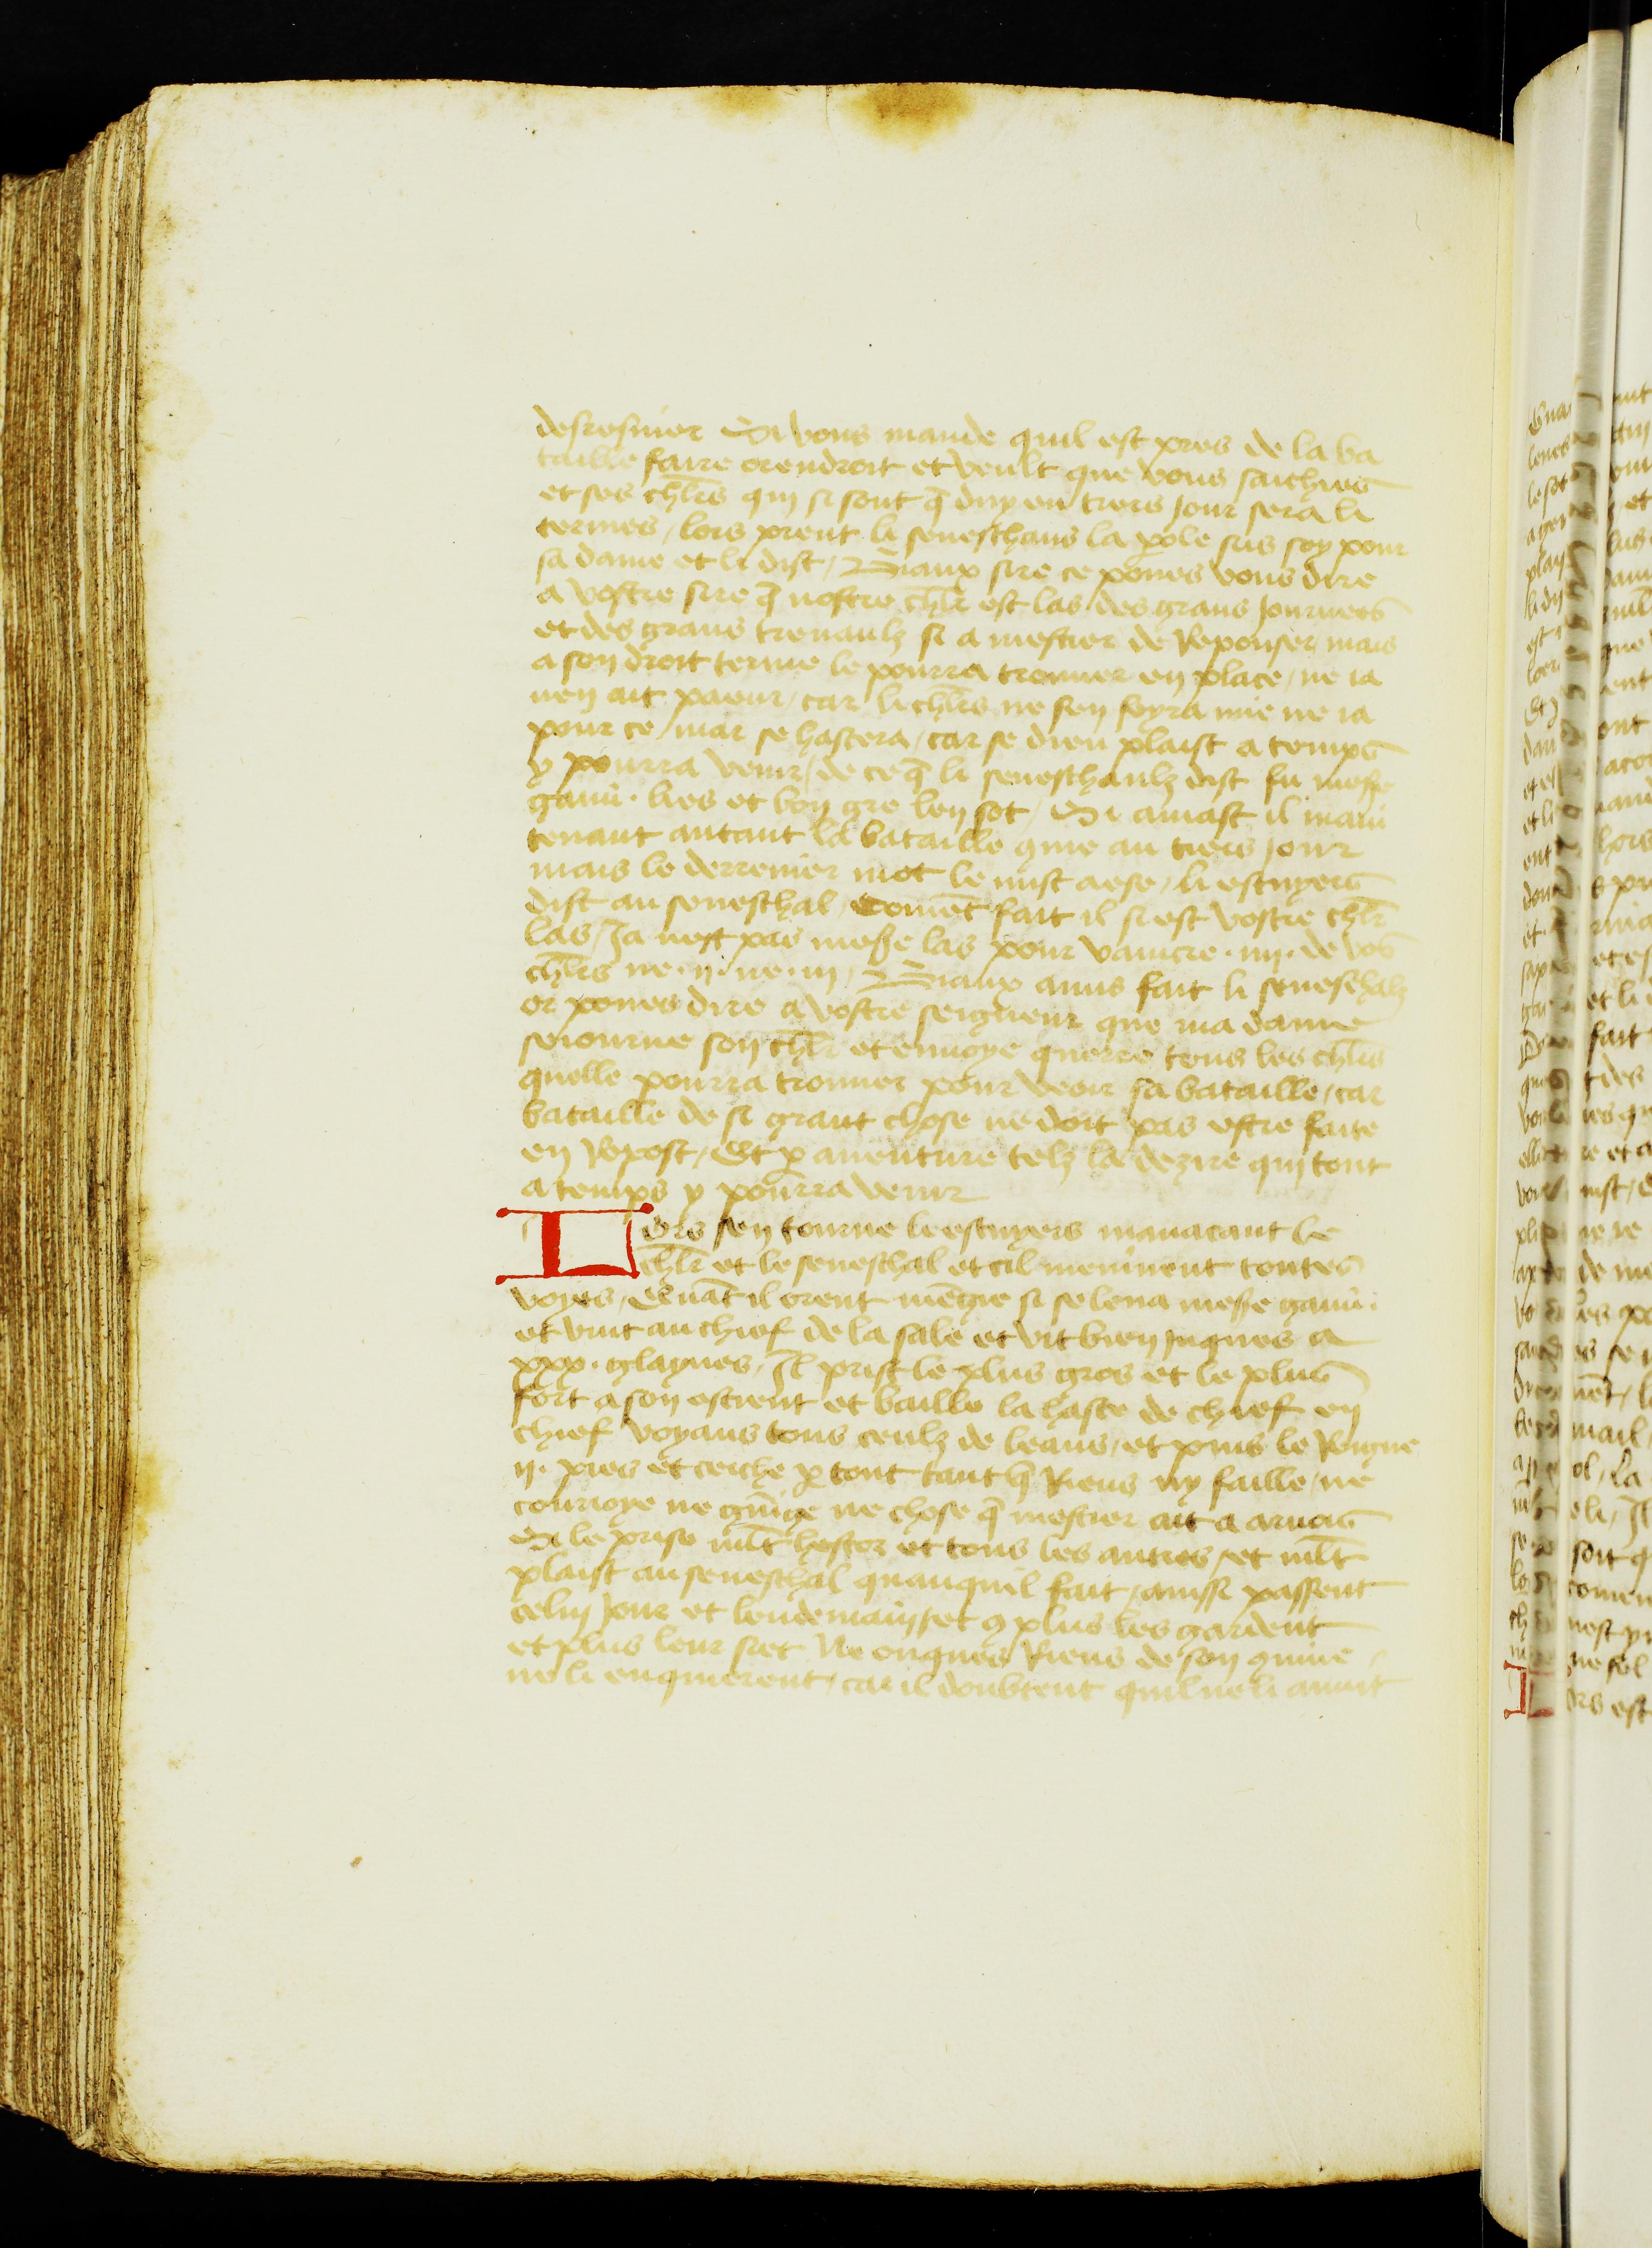 desresnier Si vous mande quil est pres de la ba
taille faire orendroit et veult que vous saichies
et ses chlrs qui si sont q̃ duy en tiers jour sera li
termes / lors prent li seneschaus la p̱ole sus soy pour
sa dame et li dist / Biaux sire ce poues vous dire
a vostre sire q̃ nostre chlr est las des grans journees
et des grans trauaulz si a mestier de Reposer mais
a son droit terme le pourra trouuer en place / ne ia
nen ait paour / car li chlrs ne sen fuyra mie ne ia
pour ce mar se hastera / car se dieu plaist a temps
y pourra venir / de ce q̃ li seneschaulz dist fu messe
gauu̇ . lies et bon gre len sot / Si amast il mainˉ
tenant autant la bataille q̃me au tiers jour
mais le derrenier mot le mist aese / li escuyers
dist au seneschal / Coment̃ fait il si est vostre chlr
las / Ja nest pas messe las pour vaincre . iiij . de vos
chlrs ne . ij . ne . iij / Biaux amis fait li seneschalz
or poues dire a vostre seigneur que ma dame
seiourne son chlr et enuoye querre tous les chlrs
quelle pourra trouuer pour veoir sa bataille / car
bataille de si grant chose ne doit pas estre faite
en Repost / Et p̱ auenture telz la dezire qui tout
a temps y pourra venir
Lors sen tourne le escuyers manacant le
chlr et le seneschal et cil meninent toutes
voyes / Quãt il orent mẽgie si se leua messe gauu̇ .
et vint au chief de la sale et vit bien jnques a
xxx . glaynes / Il prist le plus gros et le plus
fort a son escient et baille la haste de chief en
chief voyans tous ceulz de leans / et puis le Roigne
ij . pies et cerche p̱ tout tant q̃ Riens ny faille / ne
couroye ne guige ne chose q̃ mestier ait a armes
Si le prise mlt̃ hestor et tous les autres / et mlt̃
plaist au seneschal quanquil fait / ainssi passent
celui jour et lendemain / et q̃ plus les gardent
et plus leur siet Ne onques Riens de son q̃uine
ne li enquierent / car il doubtent quil ne li anuit